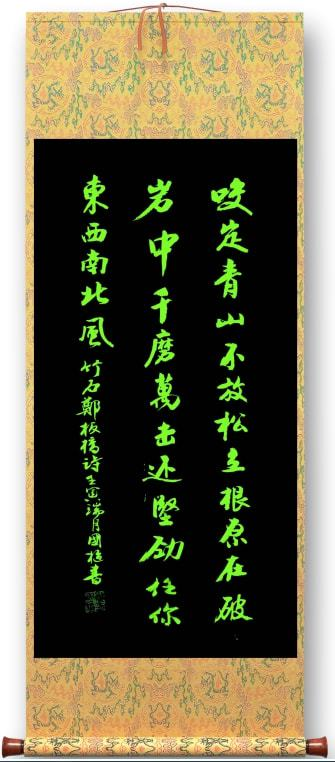 咬定青山不放松立根原在破
岩中千磨萬击还堅劲任你
東西南北風 竹石鄭板橋诗壬寅端月國書